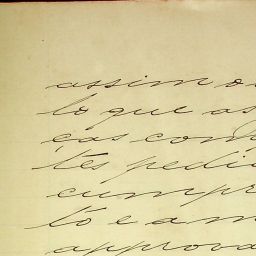 assim o
lo que as
ças com
tes pedi
cumpr
to e am
approva